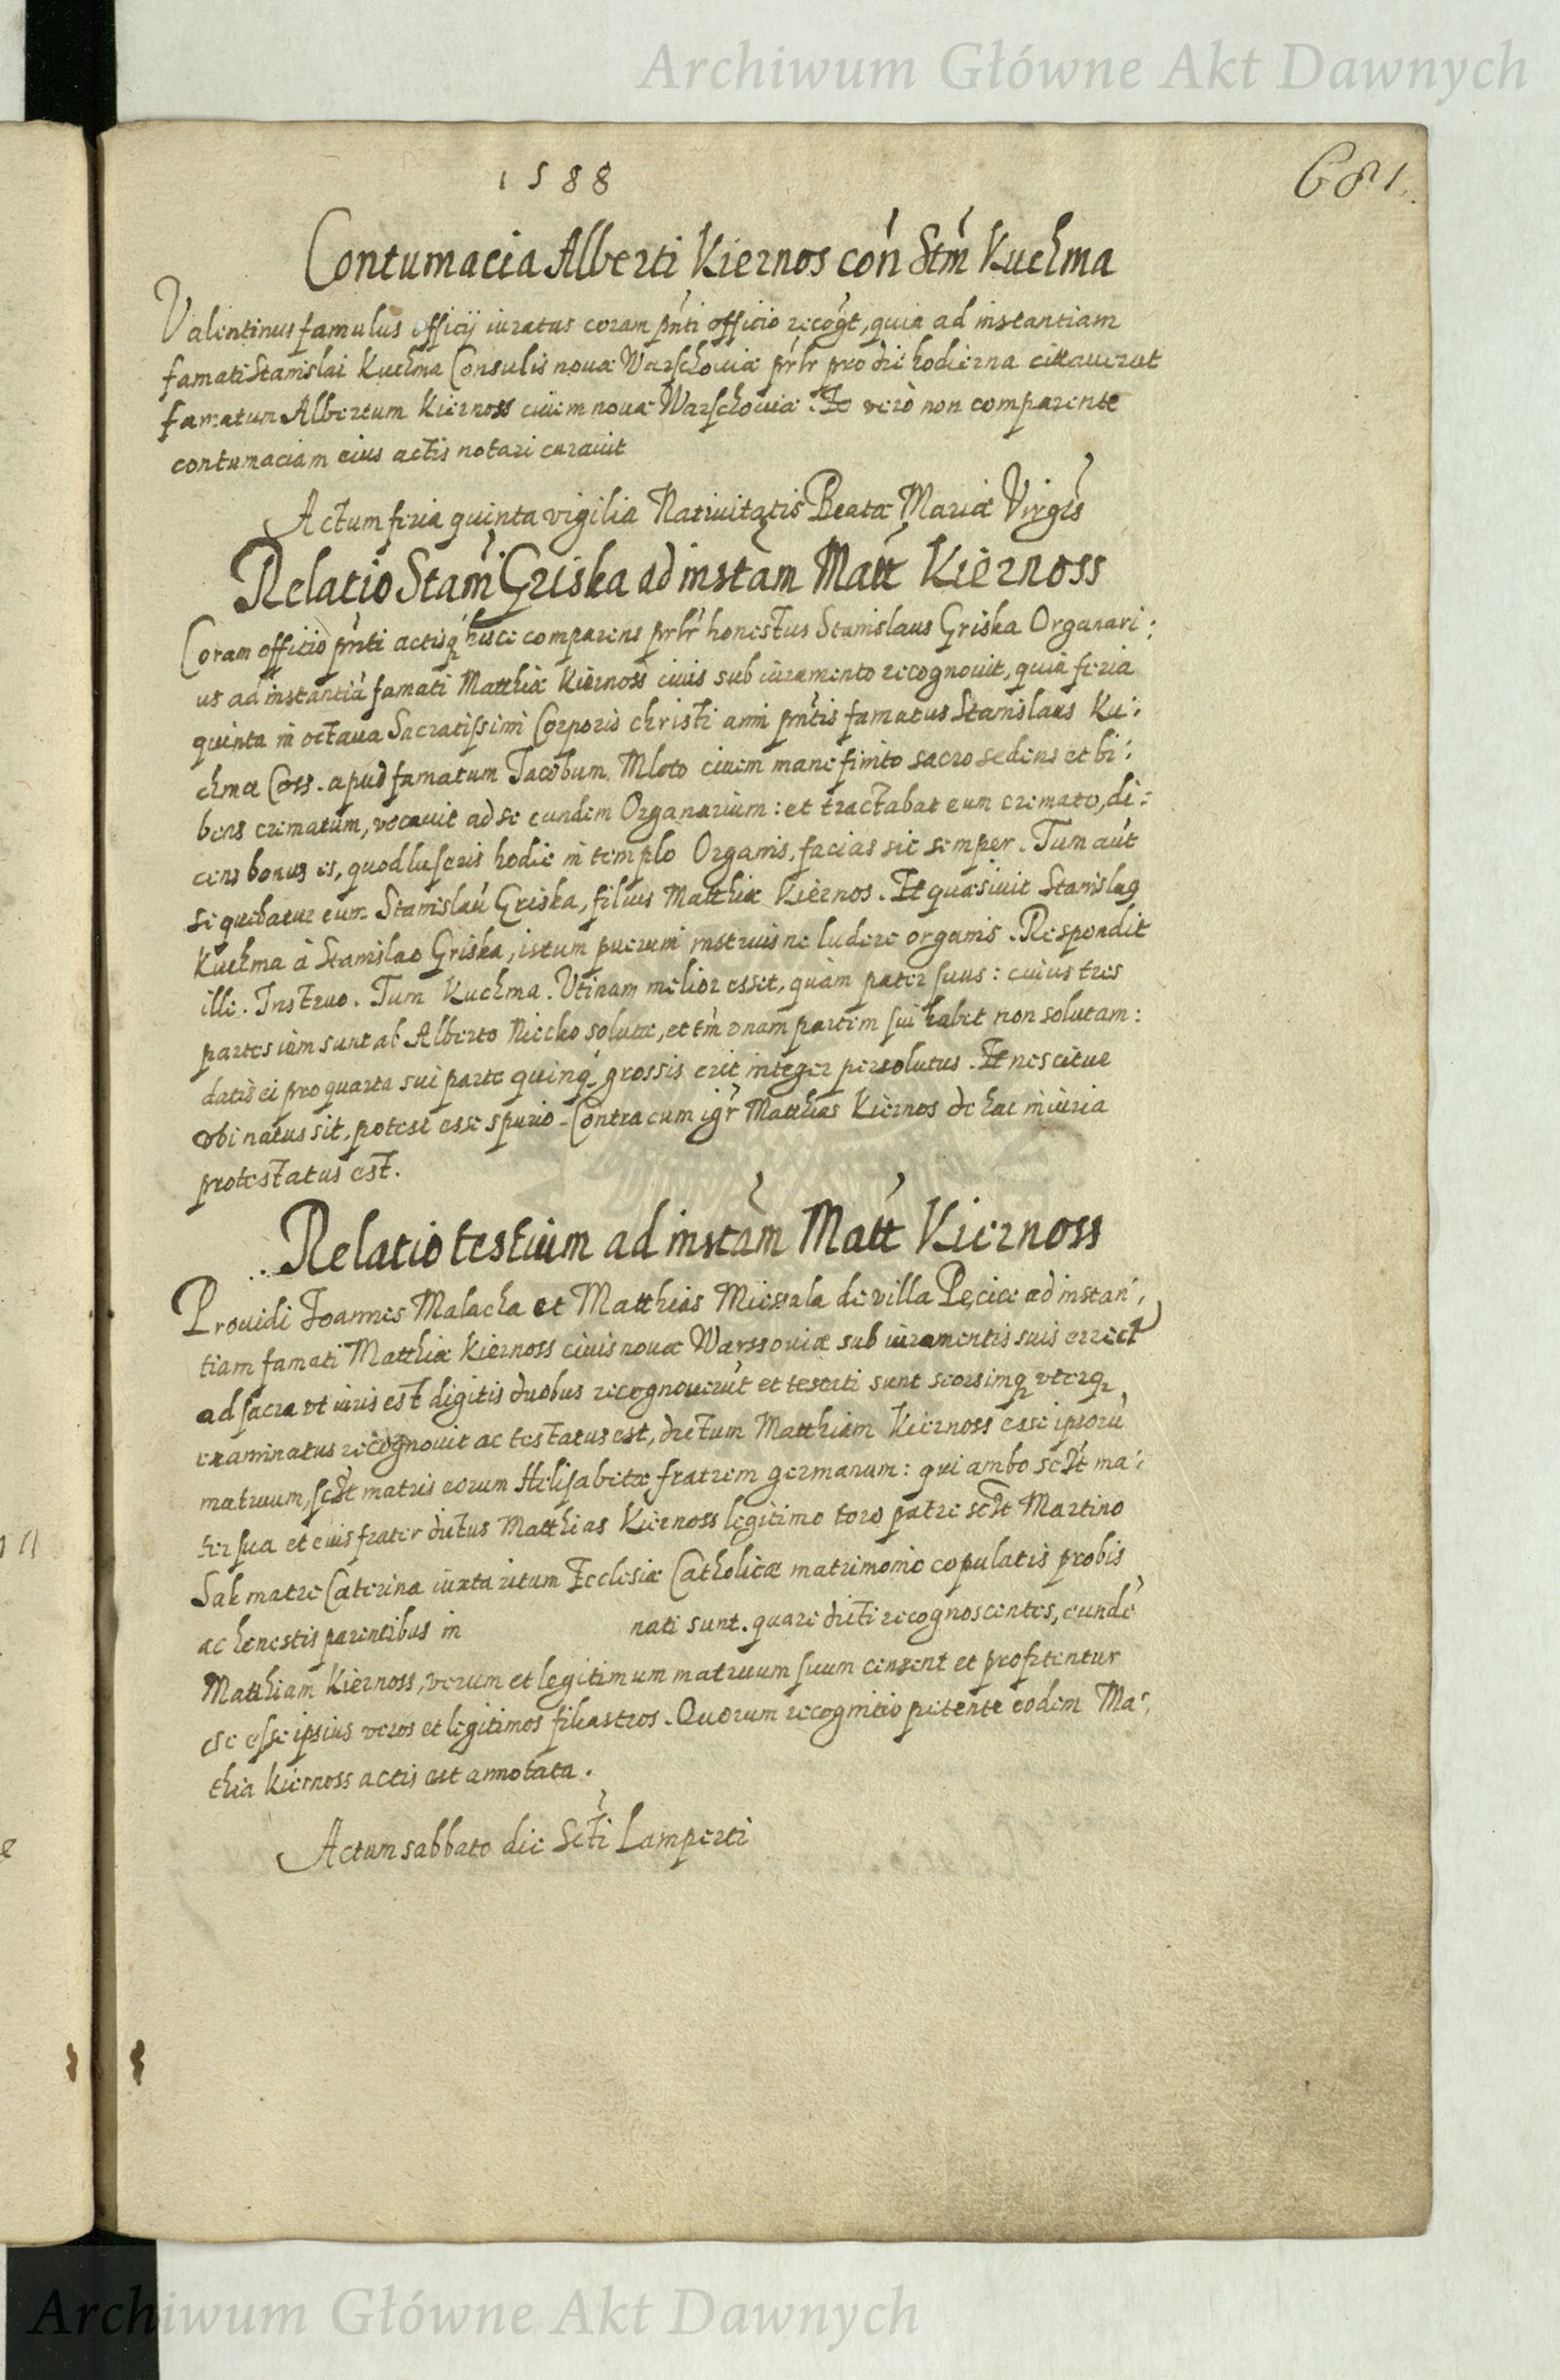 Archiwum Główne Akt Dawnych
1588
681.
Contumacia Alberti Kiernos con Stm Kuchma
Valentinus famulus officij iuratus coram pnti officio recogt, quia ad instantiam
famati Stanislai Kuchma Consulis nouæ Warschouiæ prlr pro die hodierna cittauerat
famatum Albertum Kiernoss ciuem nouæ Warschouiæ. Eo verò non comparente
contumaciam eius actis notari curauit
Actum feria quinta vigilia Natiuitatis Beatæ Mariæ Virgis
Relatio Stam Griska ad instam Matt Kiernoss
Coram officio pnti actisq hisce comparens prlr honestus Stanislaus Griska Organari:
us ad instantiã famati Matthiæ Kiernoss ciuis sub iuramento recognouit, quia feria
quinta in octaua Sacratissimi Corporis christi anni pntis famatus Stanislaus Ku:
chma Coss. apud famatum Jacobum Mloto ciuem mane finito sacro sedens et bi:
bens crematum, vocauit ad se eundem Organarium: et tractabat eum cremato, di:
cens bonus es, quod luseris hodie in templo Organis, facias sic semper. Tum aut
sequebatur eum Stanislaũ Griska, filius Matthiæ Kiernos. Et quæsiuit Stanislaq
Kuchma à Stanislao Griska, istum puerum instruisne ludere organis. Respondit
ille. Instruo. Tum Kuchma. Vtinam melior esset, quàm pater suus: cuius tres
partes iam sunt ab Alberto Niecko solutæ, et tm vnam partem sui habet non solutam:
datis ei pro quarta sui parte quinq grossis erit integer persolutus. Et nescitue
vbi natus sit, potest esse spurio. Contra eum igr Matthias Kiernos de hac iniuria
protestatus est.
Relatio testium ad instam Matt Kiernoss
Prouidi Joannes Malacha et Matthias de villa Pęcice ad instan:
tiam famati Matthiæ Kiernoss ciuis nouæ Warssouiæ sub iuramentis suis errect
ad sacra vt iuris est digitis duobus recognouerũt et testati sunt seorsimq vterq
examinatus recognouit ac testatus est, dictum Matthiam Kiernoss esse ipsorũ
matruum, sclt matris eorum Helisabetæ fratrem germanum: qui ambo sclt ma:
ter sua et eius frater dictus Matthias Kiernoss legitimo toro patre sclt Martino
Sak matre Caterina iuxta ritum Ecclesiæ Catholicæ matrimonio copulatis probis
ac honestis parentibus in nati sunt. quare dicti recognoscentes, eundẽ
Matthiam Kiernoss, verum et legitimum matruum suum censent et profitentur
se esse ipsius veros et legitimos filiastros. Quorum recognitio petente eodem Ma:
thia Kiernoss actis est annotata.
Actum sabbato die Scti Lamperti
Archiwum Główne Akt Dawnych